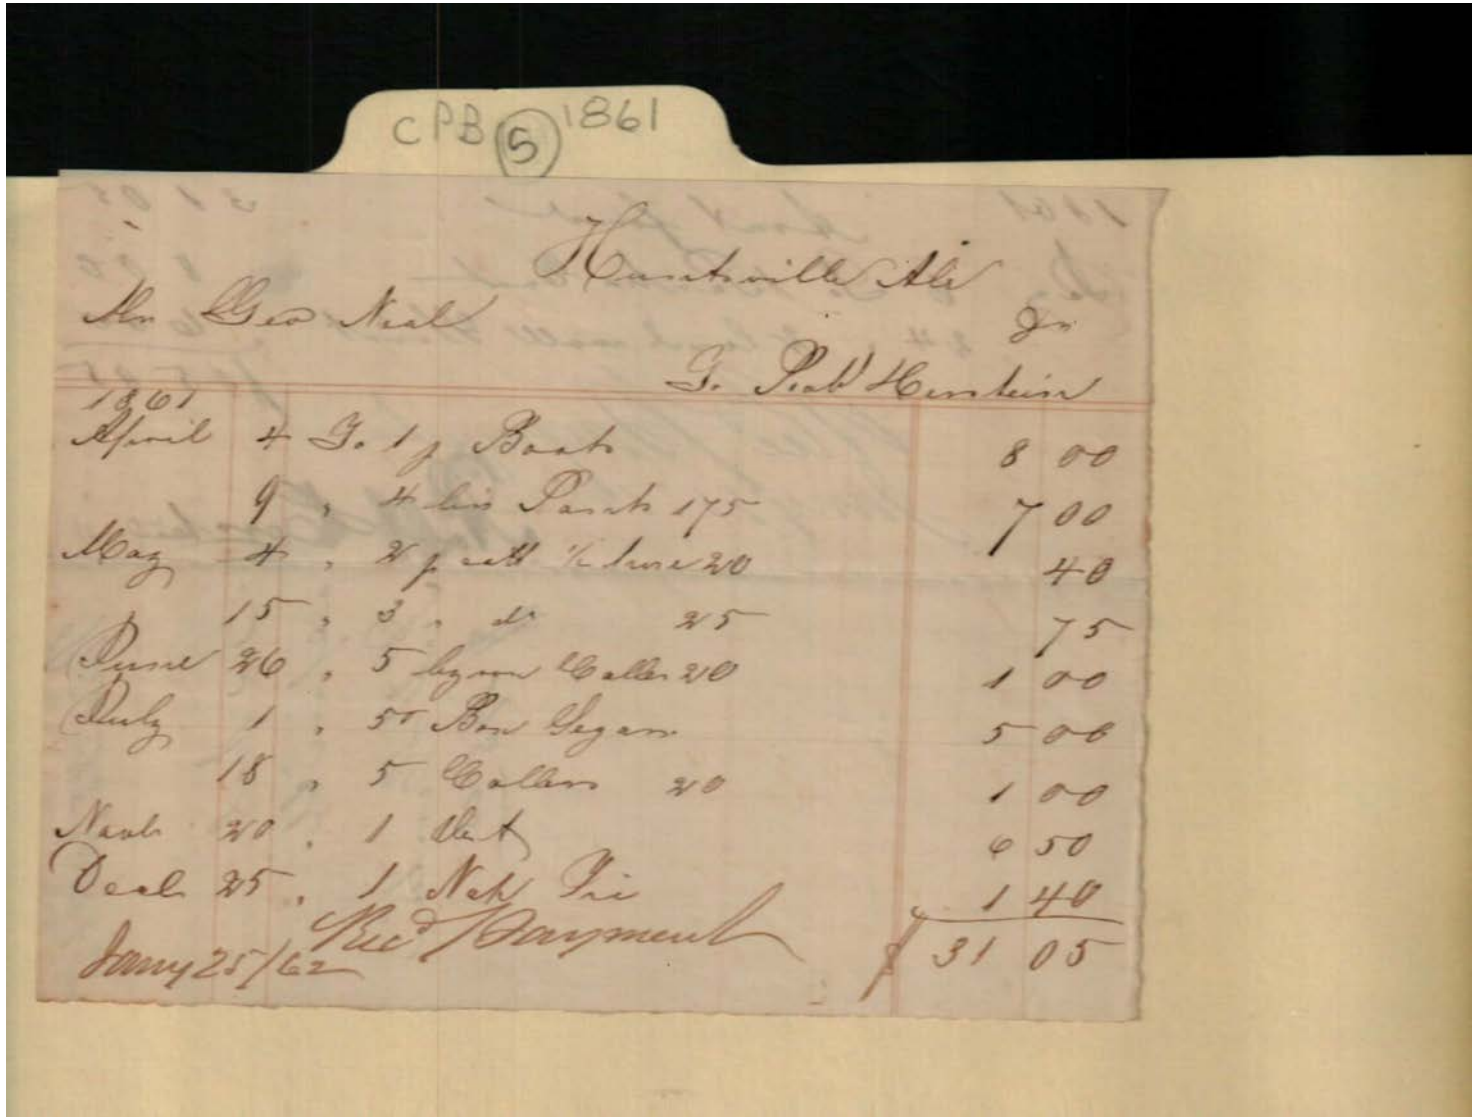 CPB 5 1861
Huntsville Ala
Mr Geo Neal Dr
To Robt Herstein
1861
April 4 To 1 p Boots 8 00
9 " 4 Pants 175 7 00
May 4 " 2 p 1/2 hose 20 40
15 " 3 " do 25 75
June 26 " 5 Collars 20 1 00
July 1 " 50 Box Segars 5 00
18 " 5 Collars 20 1 00
Novb 20 " 1 6 50
Decb 25 " 1 Nek Tie 1 40
Recd Payment $ 31 05
Jany 25/62